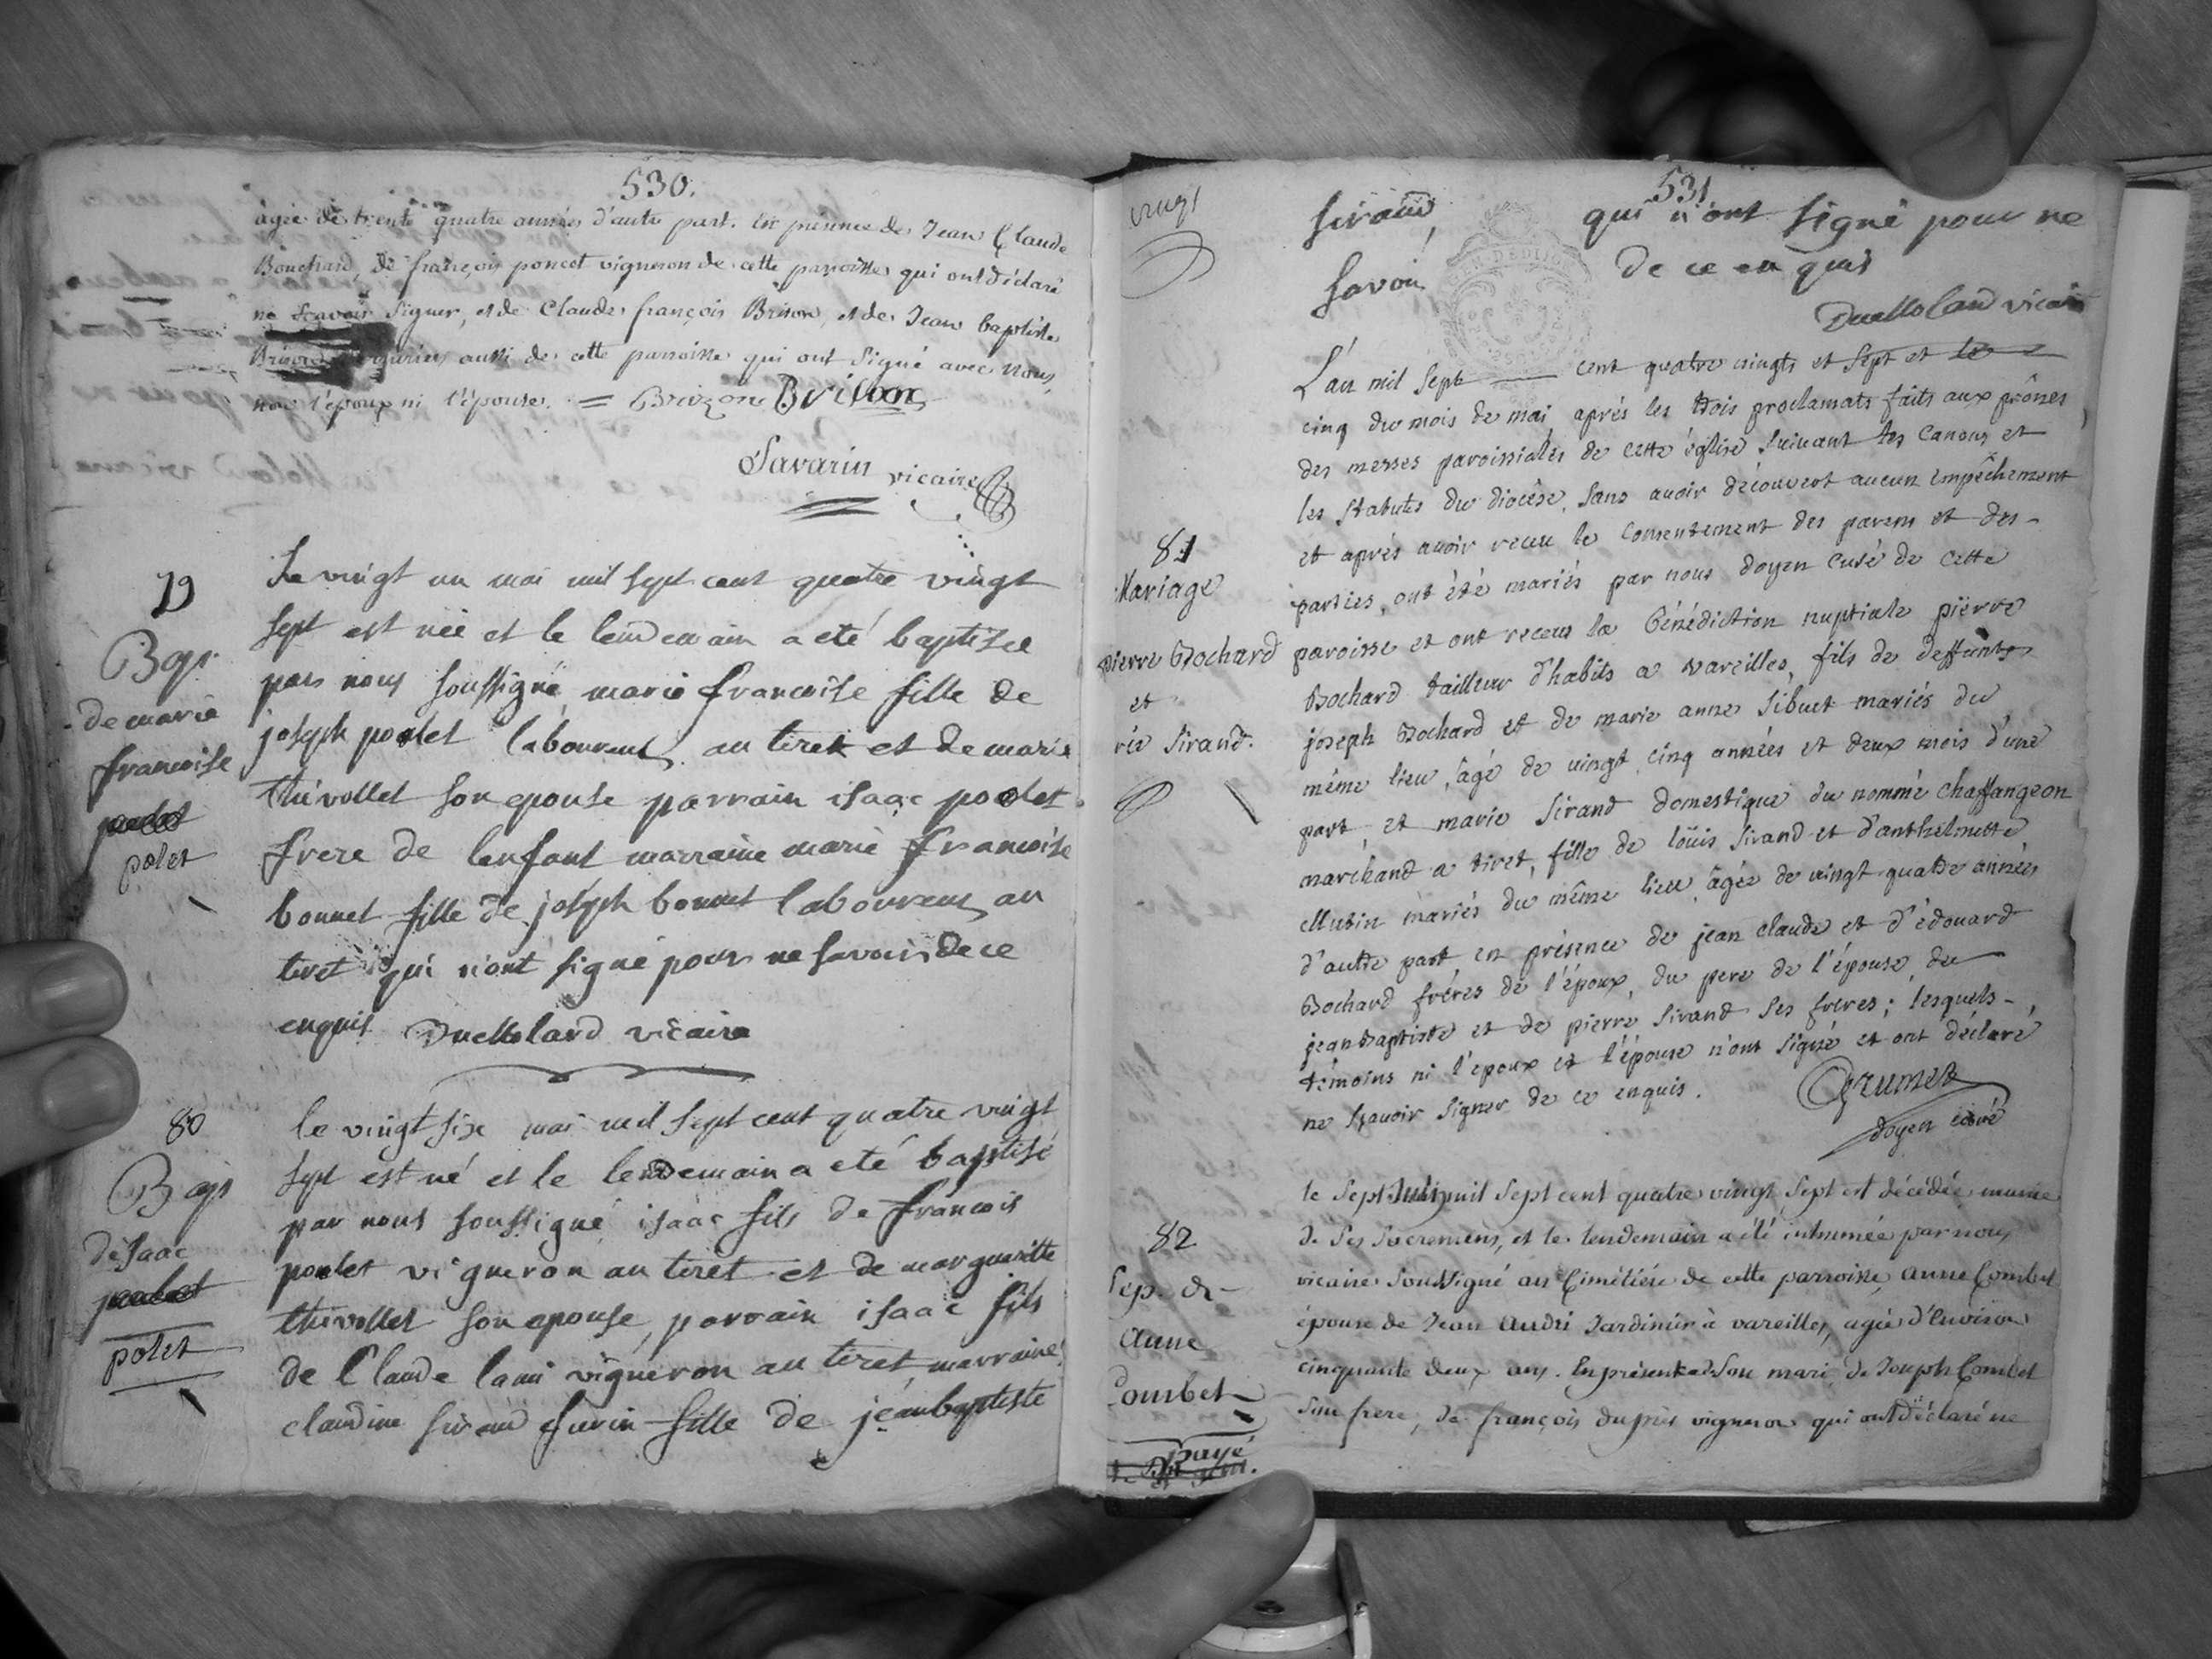 530.
âgée de trente quatre années d'autre part. En présence de Jean Claude
Bouchard, de françois poncet vigneron de cette parroisse qui ont déclaré
ne sçavoir signer, et de Claude françois Brison, et de Jean baptiste
Brison aussi de cette parroisse qui ont signé avec nous,
non l'époux ni l'épouse. = Brizon Brison
Savarin vicaire
79
Bap.
de marie
francoise
poulet
polet
Le vingt un mai mil sept cent quatre vingt
sept est née et le lendemain a eté baptisee
par nous soussigné, marie francoise fille de
joseph poulet laboureur au tiret et de marie
thévollet son epouse parrain isaac poulet
frere de lenfant marraine marie francoise
bonnet fille de joseph bonnet laboureur au
tiret qui n'ont signé pour ne savoir de ce
enquis Ducholard vicaire
80
Bap.
d'isaac
poulet
polet
le vingt six mai mil sept cent quatre vingt
sept est né et le lendemain a eté baptisé
par nous soussigné isaac fils de francois
poulet vigneron au tiret et de margueritte
thevollet son epouse, parrain isaac fils
de Claude lami vigneron au tiret, marraine
claudine siraud fille de jeanbaptiste
531
siraud, qui n'ont signé pour ne
savoir de ce enquis
Duchollard vicaire
L'an mil sept cent quatre vingts et sept et le
cinq du mois de mai, aprés les trois proclamats faits aux prônes
des messes paroissiales de cette église suivant les canons et
les statuts du diocèse, sans avoir découvert aucun empêchement
et aprés avoir receu le consentement des parens et des
parties, ont été mariés par nous doyen curé de cette
paroisse et ont receus la bénédiction nuptiale pierre
Bochard tailleur d'habits a vareilles, fils de deffunts
joseph Bochard et de marie anne sibuet mariés du
même lieu, âgé de vingt cinq années et deux mois d'une
part et marie sirand domestique du nommé chaffangeon
marchand a tiret, fille de loüis sirand et d'anthelmette
Mutin mariés du même lieu âgée de vingt quatre années
d'autre part en présence de jean claude et d'édouard
Bochard fréres de l'époux, du pere de l'épouse, de
jean baptiste et de pierre sirand ses freres; lesquels
témoins ni l'epoux et l'épouse n'ont signé et ont déclaré
ne sçavoir signer de ce enquis.
Grumet
doyen curé
81
Mariage
pierre Bochard
et
rie sirand.
82
Sep. de
Anne
Combet
payé
le sept mil sept cent quatre vingt sept est décédée munie
de ses sacremens, et le lendemain a été inhumée par nous
vicaire soussigné au Cimétière de cette parroisse, anne Combet
épouse de Jean andré Jardinier à vareilles, agée d'environ
cinquante deux ans. En présence de son mari, de Joseph Combet
son frere, de françois duprés vigneron qui ont déclaré ne